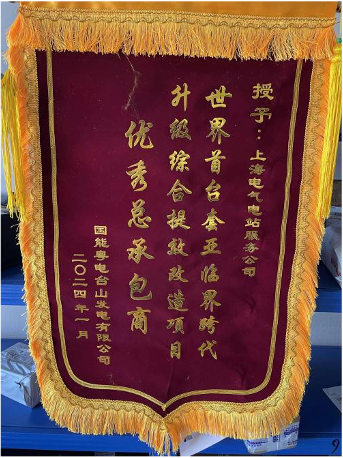 授予：上海电气电站服务公司
世界首台套亚临界跨代
升级综合提效改造项目
优秀总承包商
国能粤电台山发电有限公司
二〇二四年一月
9